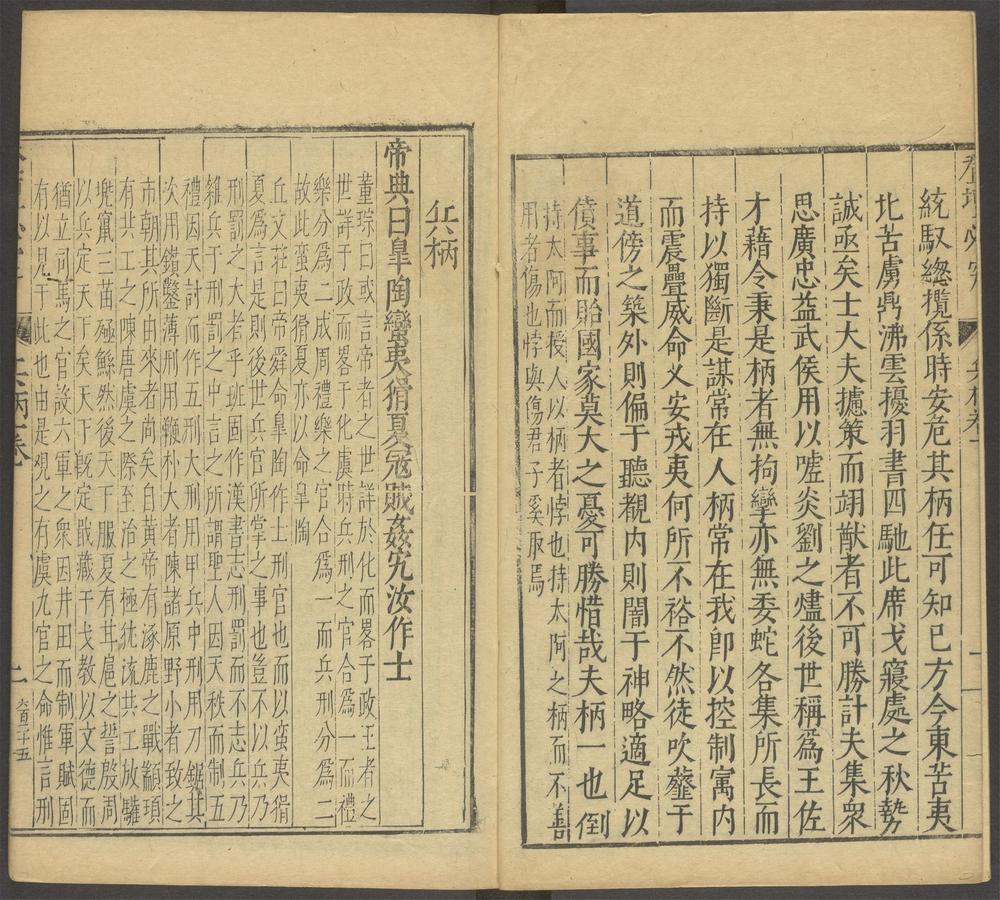 統馭緫攬係時安危其柄任可知已方今東苦夷
北苦虜鼎沸雲擾羽書四馳此席戈寢處之秋勢
誠亟矣士大夫攄策而翊猷者不可勝計夫集衆
思廣忠益武侯用以噓炎劉之燼後世稱爲王佐
才藉令秉是柄者無拘攣亦無委蛇各集所長而
持以獨斷是謀常在人柄常在我卽以控制寓内
而震疊威命乂安戎夷何所不裕不然徒吹虀于
道傍之築外則偏于聽覩内則闇于神略適足以
僨事而貽國家莫大之憂可勝惜哉夫柄一也倒
持太阿而授人以柄者悖也持太阿之柄而不善
用者傷也悖與傷君子奚取焉
兵柄
帝典曰皐陶蠻夷猾夏冦賊姦宄汝作士
董琮曰或言帝者之世詳於化而畧于政王者之
世詳于政而畧于化虞時兵刑之官合爲一而禮
樂分爲二成周禮樂之官合爲一而兵刑分爲二
故此蠻夷猾夏亦以命皐陶
丘文莊曰帝舜命皐陶作士刑官也而以蛮夷猾
夏爲言是則後世兵官所掌之事也豈不以兵乃
刑罰之大者乎班固作漢書志刑罰而不志兵乃
雜兵于刑罰之中言之所謂聖人因天秩而制五
禮因天討而作五刑大刑用甲兵中刑用刀鋸其
次用鑚鑿薄刑用鞭朴大者陳諸原野小者致之
市朝其所由來者尚矣自黃帝有涿鹿之戰顓頊
有共工之陳唐虞之際至治之極犹流共工放驩
兠竄三苗殛鯀然後天下服夏有甘扈之誓殷周
以兵定天下矣天下旣定戢藏干戈教以文德而
猶立司馬之官設六軍之衆因井田而制軍賦固
有以見于此也由是观之有虞九官之命惟言刑
兵柄卷一